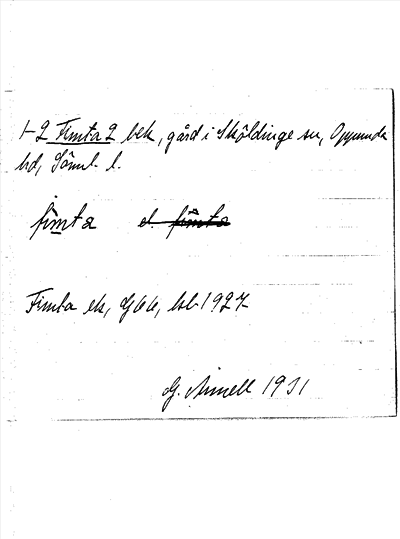 1-2 Fimta 2 bek, gård i Sköldinge sn, Oppunda
hd, Söml. l.
fimta el. fimta
Fimta ek, G66, bl 1927
G. Annell 1931